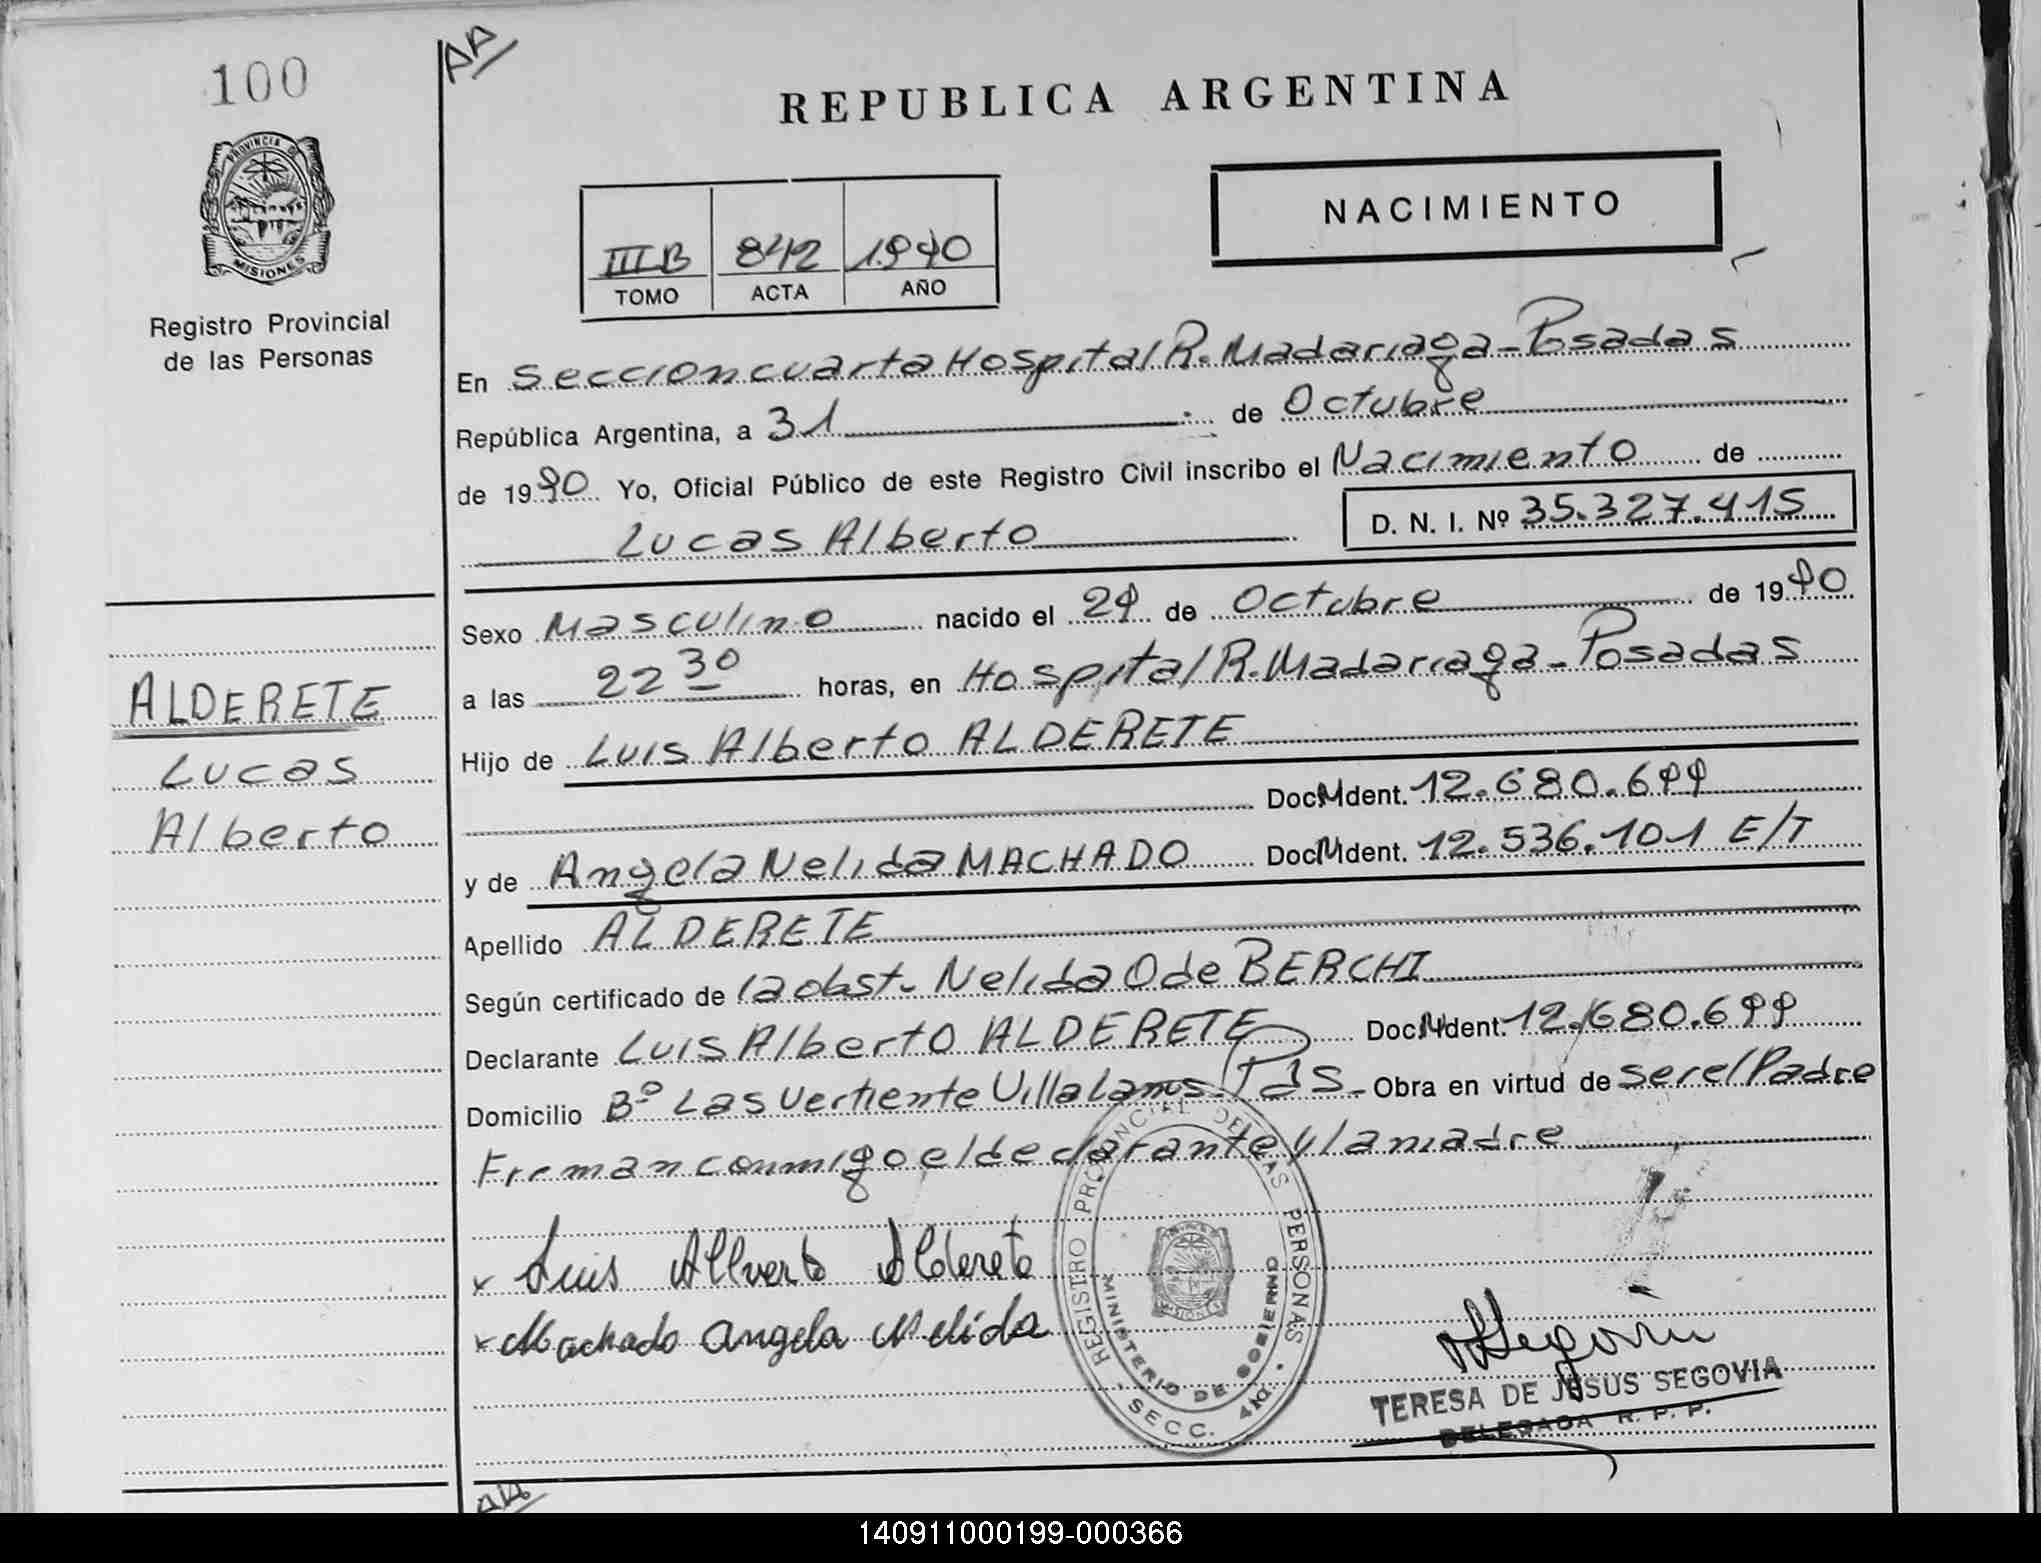 100
AA
REPUBLICA ARGENTINA
PROVINCIA DE
MISIONES
Registro Provincial
de las Personas
NACIMIENTO
III B 842 1990
TOMO ACTA AÑO
En Seccion cuarta Hospital R. Madariaga - Posadas
República Argentina, a 31 de Octubre
de 1990 Yo, Oficial Público de este Registro Civil inscribo el Nacimiento de
Lucas Alberto D. N. I. Nº 35.327.415
Sexo Masculino nacido el 29 de Octubre de 1990
a las 22 30 horas, en Hospital R. Madariaga - Posadas
Hijo de Luis Alberto ALDERETE
Doc. M dent. 12.680.699
y de Angela Nelida MACHADO Doc. M dent. 12.536.101 E/T
Apellido ALDERETE
Según certificado de la obst. Nelida O de BERCHI
Declarante Luis Alberto ALDERETE Doc. M dent. 12.680.699
Domicilio Bº Las Vertiente Villa Lanus Pdas - Obra en virtud de ser el Padre
Freman conmigo el declarante y la madre
ALDERETE
Lucas
Alberto
x Luis Allverto Alderete
x Machado Angela Nelida
REGISTRO PROVINCIAL DE LAS PERSONAS
MINISTERIO DE GOBIERNO
SECC. 4ta
Segovia
TERESA DE JESUS SEGOVIA
DELEGADA R. P. P.
AA
140911000199-000366